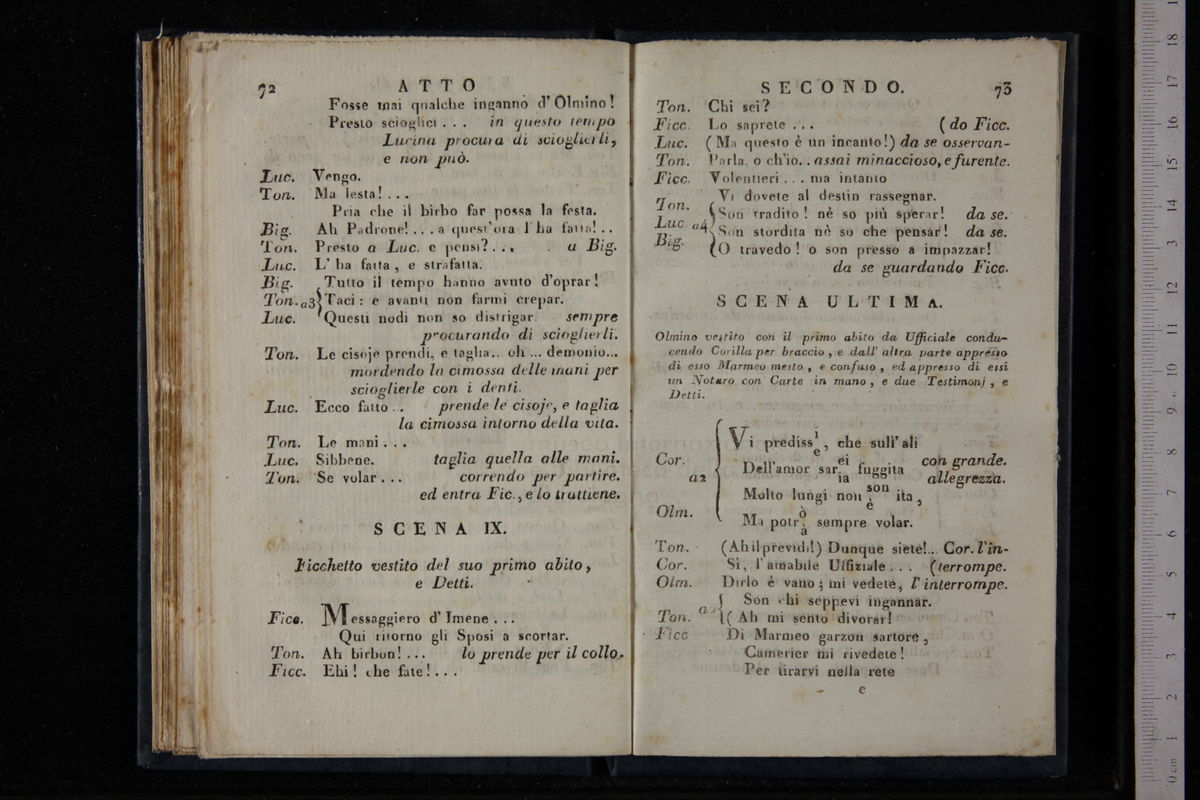 72 ATTO
Fosse mai qualche inganno d'Olmino!
Presto scioglici . . . in questo tempo
Lucina procura di scioglierli,
e non può.
Luc. Vengo.
Ton. Ma lesta! . . .
Pria che il birbo far possa la festa.
Big. Ah Padrone! . . . a quest'ora l'ha fatta! . .
Ton. Presto a Luc. e pensi? . . . a Big.
Luc. L'ha fatta, e strafatta.
Big. Tutto il tempo hanno avuto d'oprar!
Ton. a3 Taci: e avanti non farmi crepar.
Luc. Questi nodi non so distrigar. sempre
procurando di scioglierli.
Ton. Le cisoje prendi, e taglia.. oh ... demonio...
mordendo la cimossa delle mani per
scioglierle con i denti.
Luc. Ecco fatto . . prende le cisoje, e taglia
la cimossa intorno della vita.
Ton. Le mani . . .
Luc. Sibbene. taglia quella alle mani.
Ton. Se volar . . . correndo per partire.
ed entra Fic., e lo trattiene.
SCENA IX.
Ficchetto vestito del suo primo abito,
e Detti.
Ficc. Messaggiero d'Imene . . .
Qui ritorno gli Sposi a scortar.
Ton. Ah birbon! . . . lo prende per il collo.
Ficc. Ehi! che fate! . . .
SECONDO. 73
Ton. Chi sei?
Ficc. Lo saprete . . . (do Ficc.
Luc. (Ma questo è un incanto!) da se osservan-
Ton. Parla. o ch'io. . assai minaccioso, e furente.
Ficc. Volentieri . . . ma intanto
Vi dovete al destin rassegnar.
Ton. Son tradito! nè so più sperar! da se.
Luc. a4 Son stordita nè so che pensar! da se.
Big. O travedo! o son presso a impazzar!
da se guardando Ficc.
SCENA ULTIMA.
Olmino vestito con il primo abito da Ufficiale condu-
cendo Corilla per braccio, e dall' altra parte appresso
di esso Marmeo mesto, e confuso, ed appresso di essi
un Notaro con Carte in mano, e due Testimonj, e
Detti.
Vi prediss i e, che sull'ali
Cor. Dell'amor sar ei ia fuggita con grande.
a2 allegrezza.
Molto lungi non son è ita,
Olm. Ma potr ò à sempre volar.
Ton. (Ah il previdi!) Dunque siete!.. Cor. l'in-
Cor. Sì, l'amabile Uffiziale . . . (terrompe.
Olm. Dirlo è vano; mi vedete, l'interrompe.
Son chi seppevi ingannar.
Ton. a2 (Ah mi sento divorar!
Ficc Di Marmeo garzon sartore,
Camerier mi rivedete!
Per tirarvi nella rete
e
0 cm 1 2 3 4 5 6 7 8 9 10 11 12 13 14 15 16 17 18